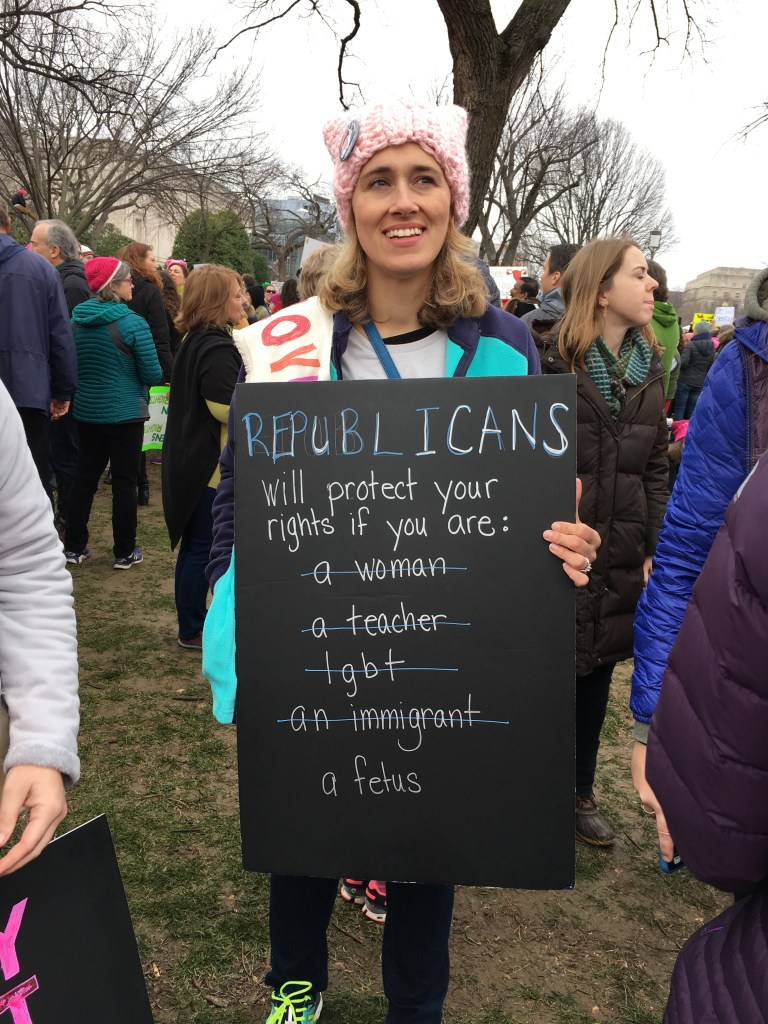 REPUBLICANS
will protect your
rights if you are:
a woman
a teacher
lgbt
an immigrant
a fetus
OY
Y